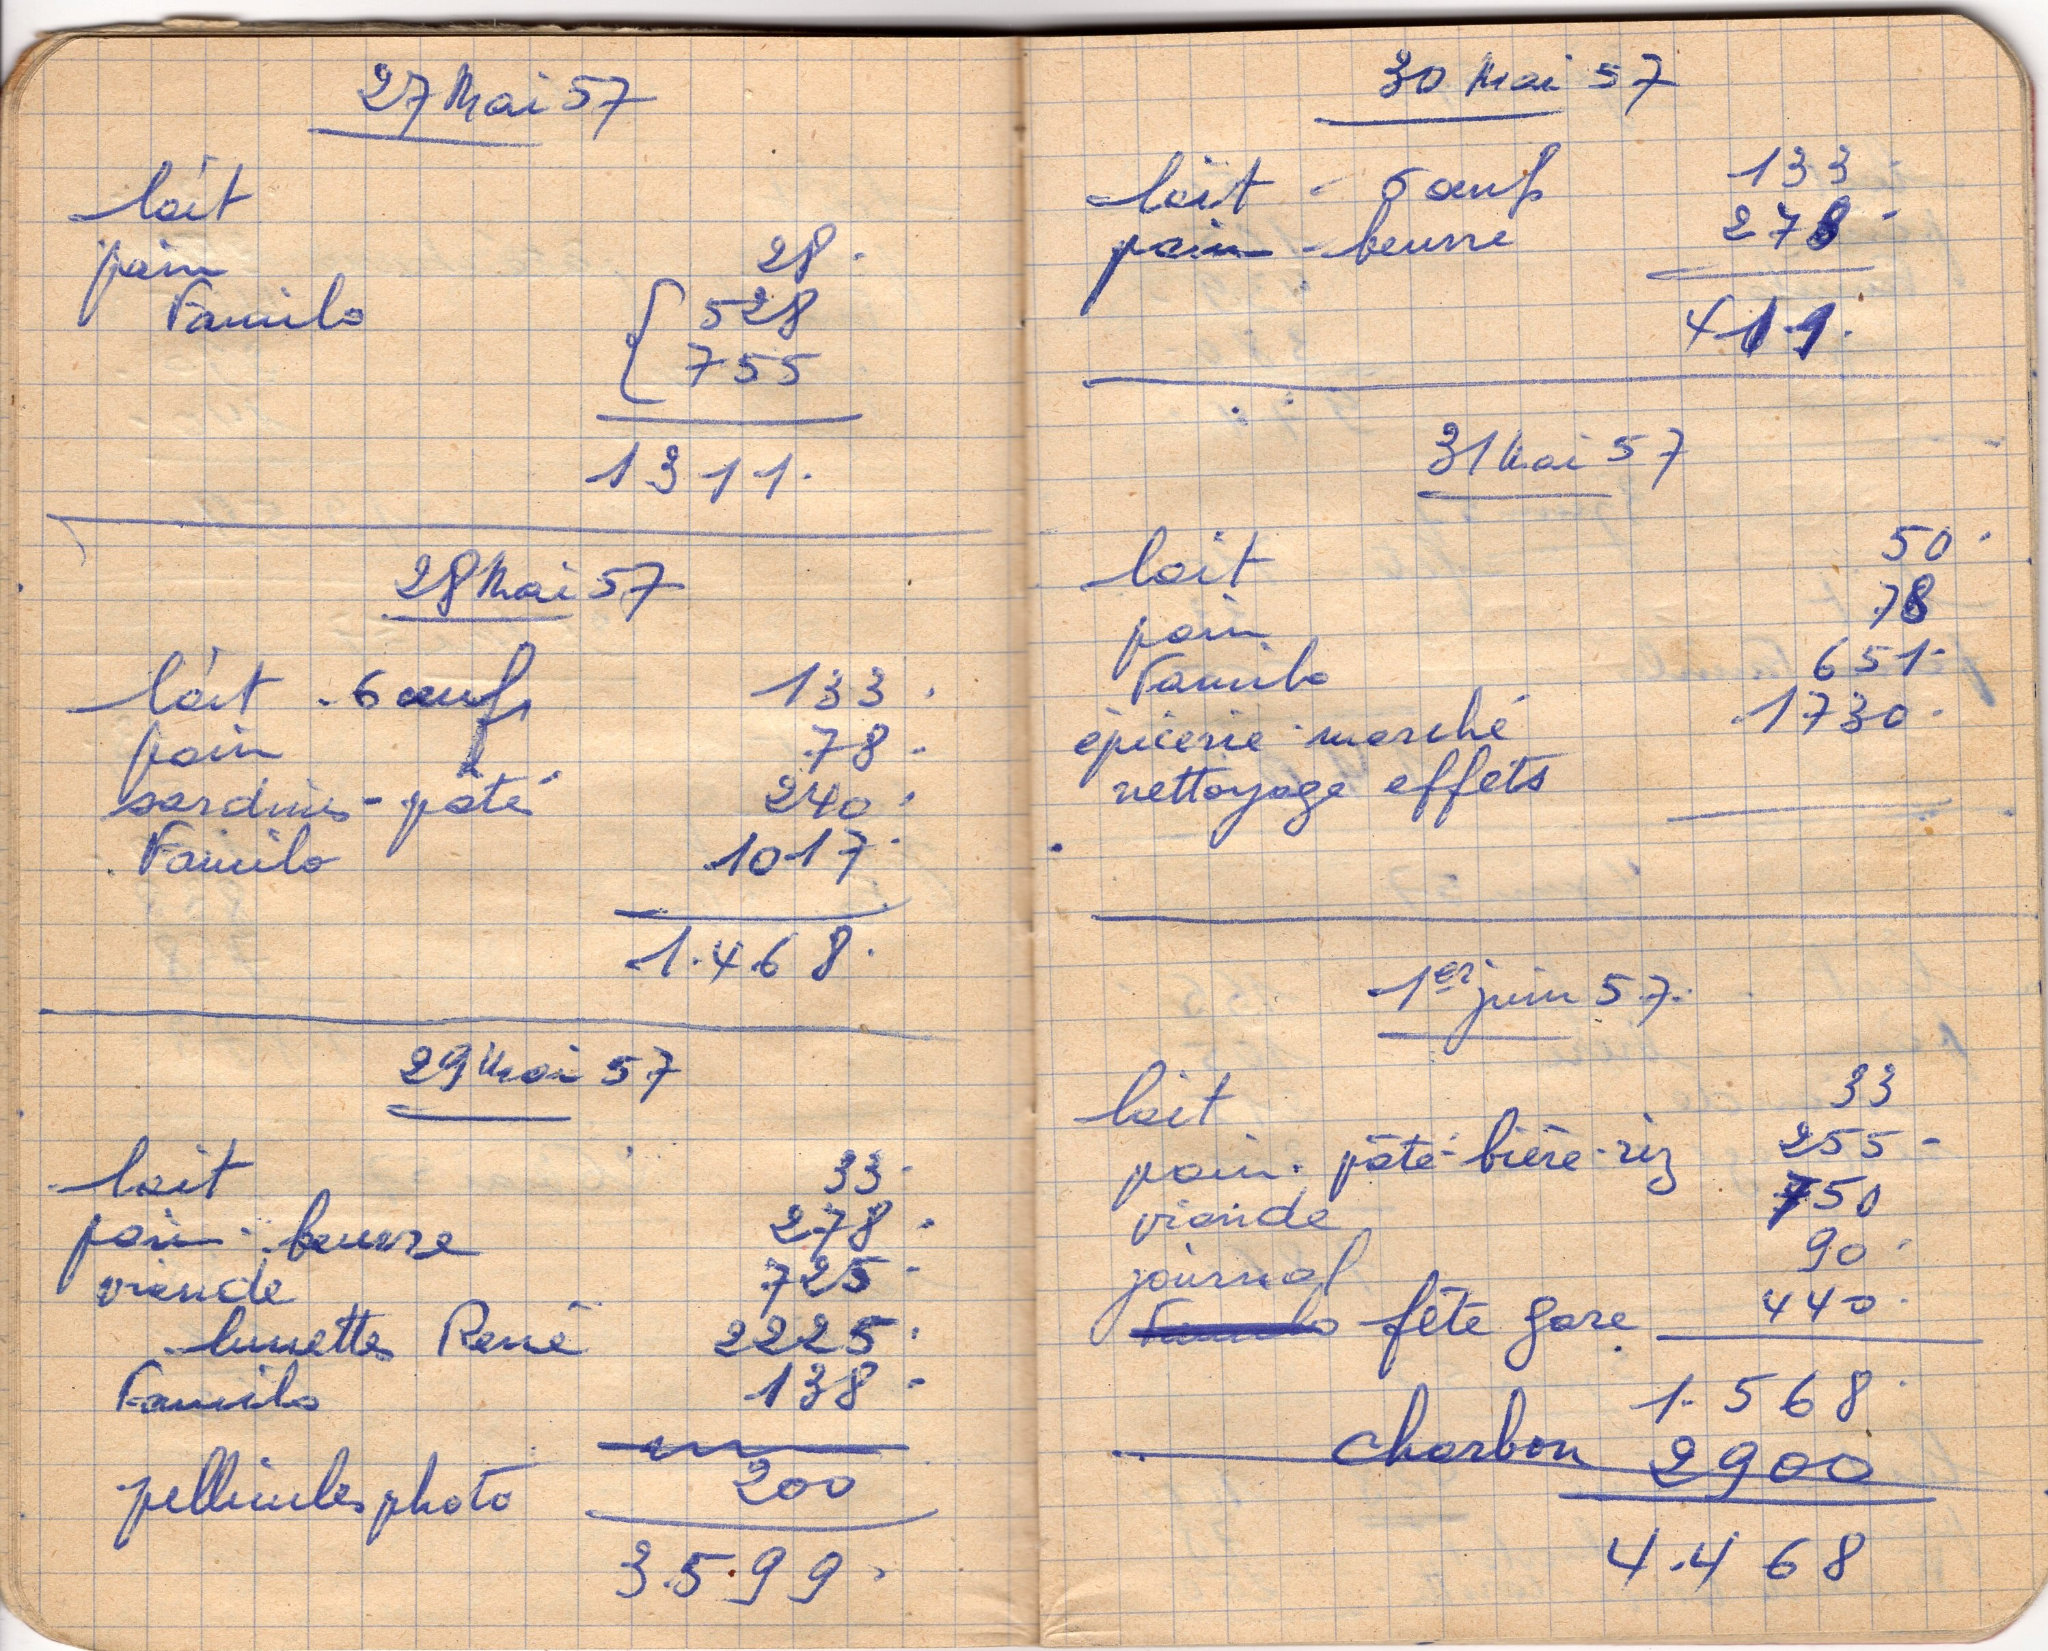 27 Mai 57
lait
pain 28.
Familo { 528
755
1311.
28 Mai 57
lait - 6 œufs 133.
pain 78.
sardines - pâté 240.
Familo 1017.
1.468.
29 Mai 57
lait 33.
pain - beurre 278.
viande 725.
lunettes René 2225.
Familo 138.
pellicules photo 200
3.599.
30 Mai 57
lait - 6 œufs 133.
pain - beurre 278.
411.
31 Mai 57
lait 50.
pain 78
Familo 651.
épicerie marché 1730.
nettoyage effets
1er juin 57.
lait 33
pain. pâté - bière - riz 255.
viande 750
journal 90.
Familo fête gare 440.
1.568.
charbon 2900
4.468